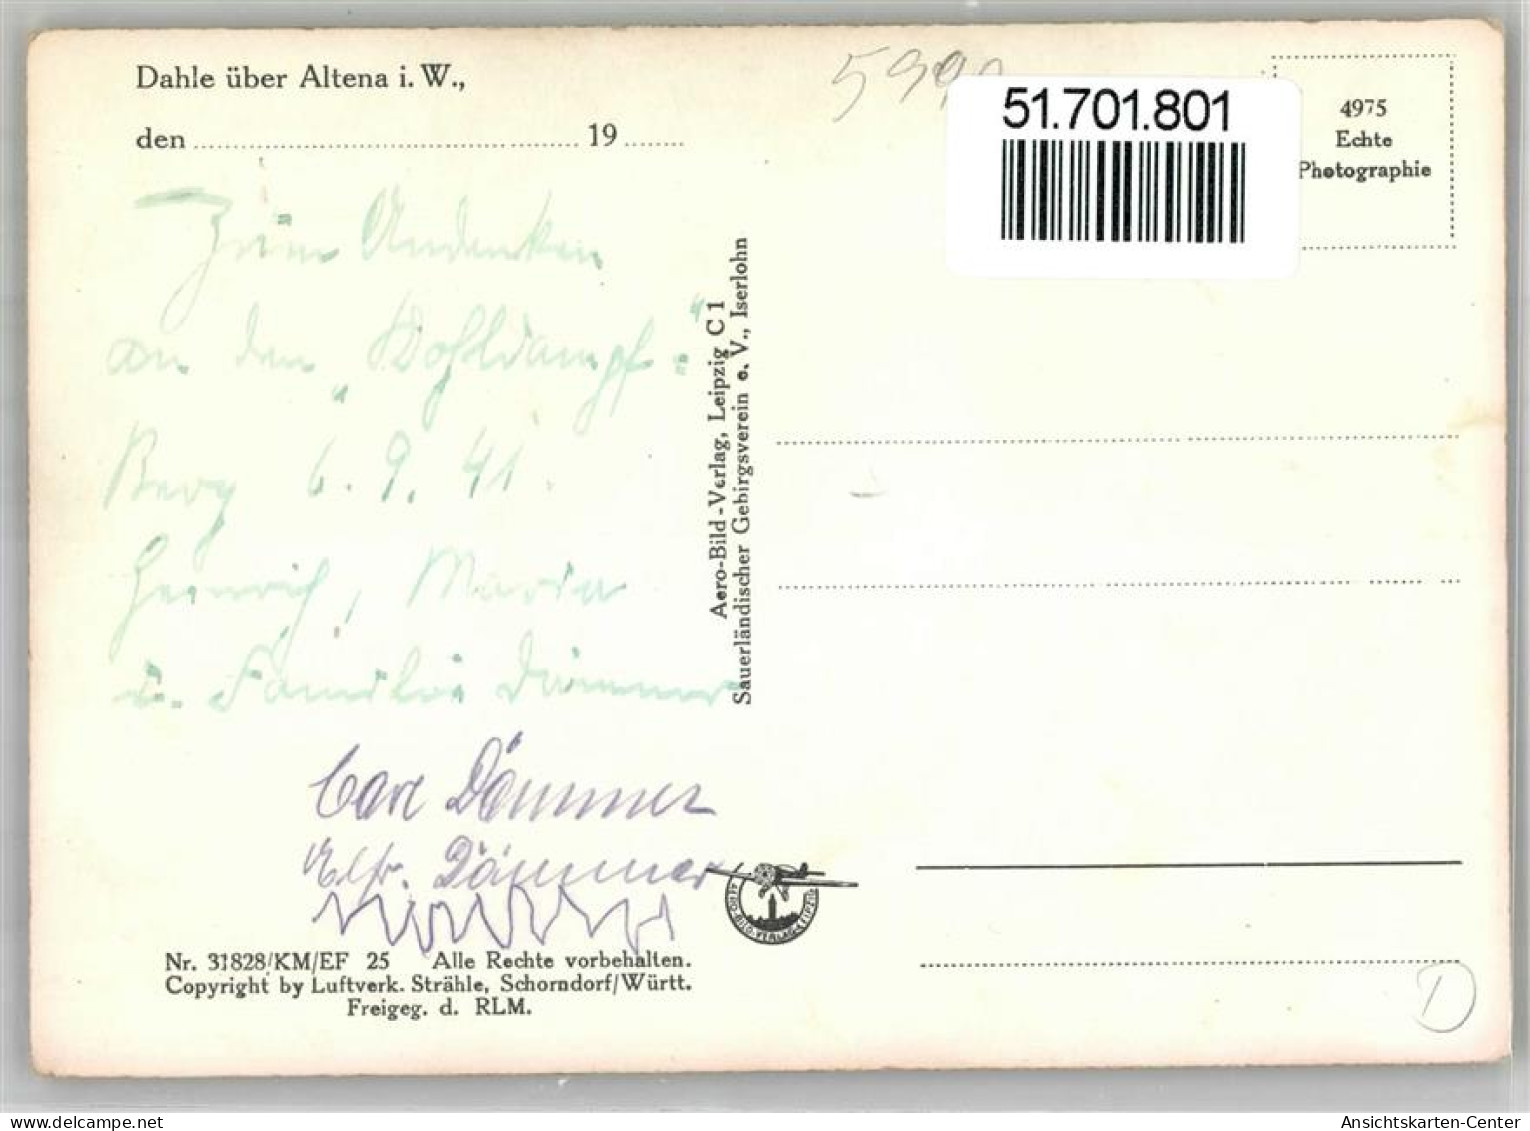 Dahle über Altena i. W.,
den 19
599
51.701.801
4975
Echte
Photographie
Zum Andenken
an den „Kohldampf-"
Berg 6. 9. 41.
Heinrich, Maria
u. Familie Dämmer
Carl Dämmer
Elfr. Dämmer
Aero-Bild-Verlag, Leipzig C 1
Sauerländischer Gebirgsverein e. V., Iserlohn
AERO-BILD-VERLAG LEIPZIG
Nr. 31828/KM/EF 25 Alle Rechte vorbehalten.
Copyright by Luftverk. Strähle, Schorndorf/Württ.
Freigeg. d. RLM.
D
oldthing.de
Ansichtskarten-Center